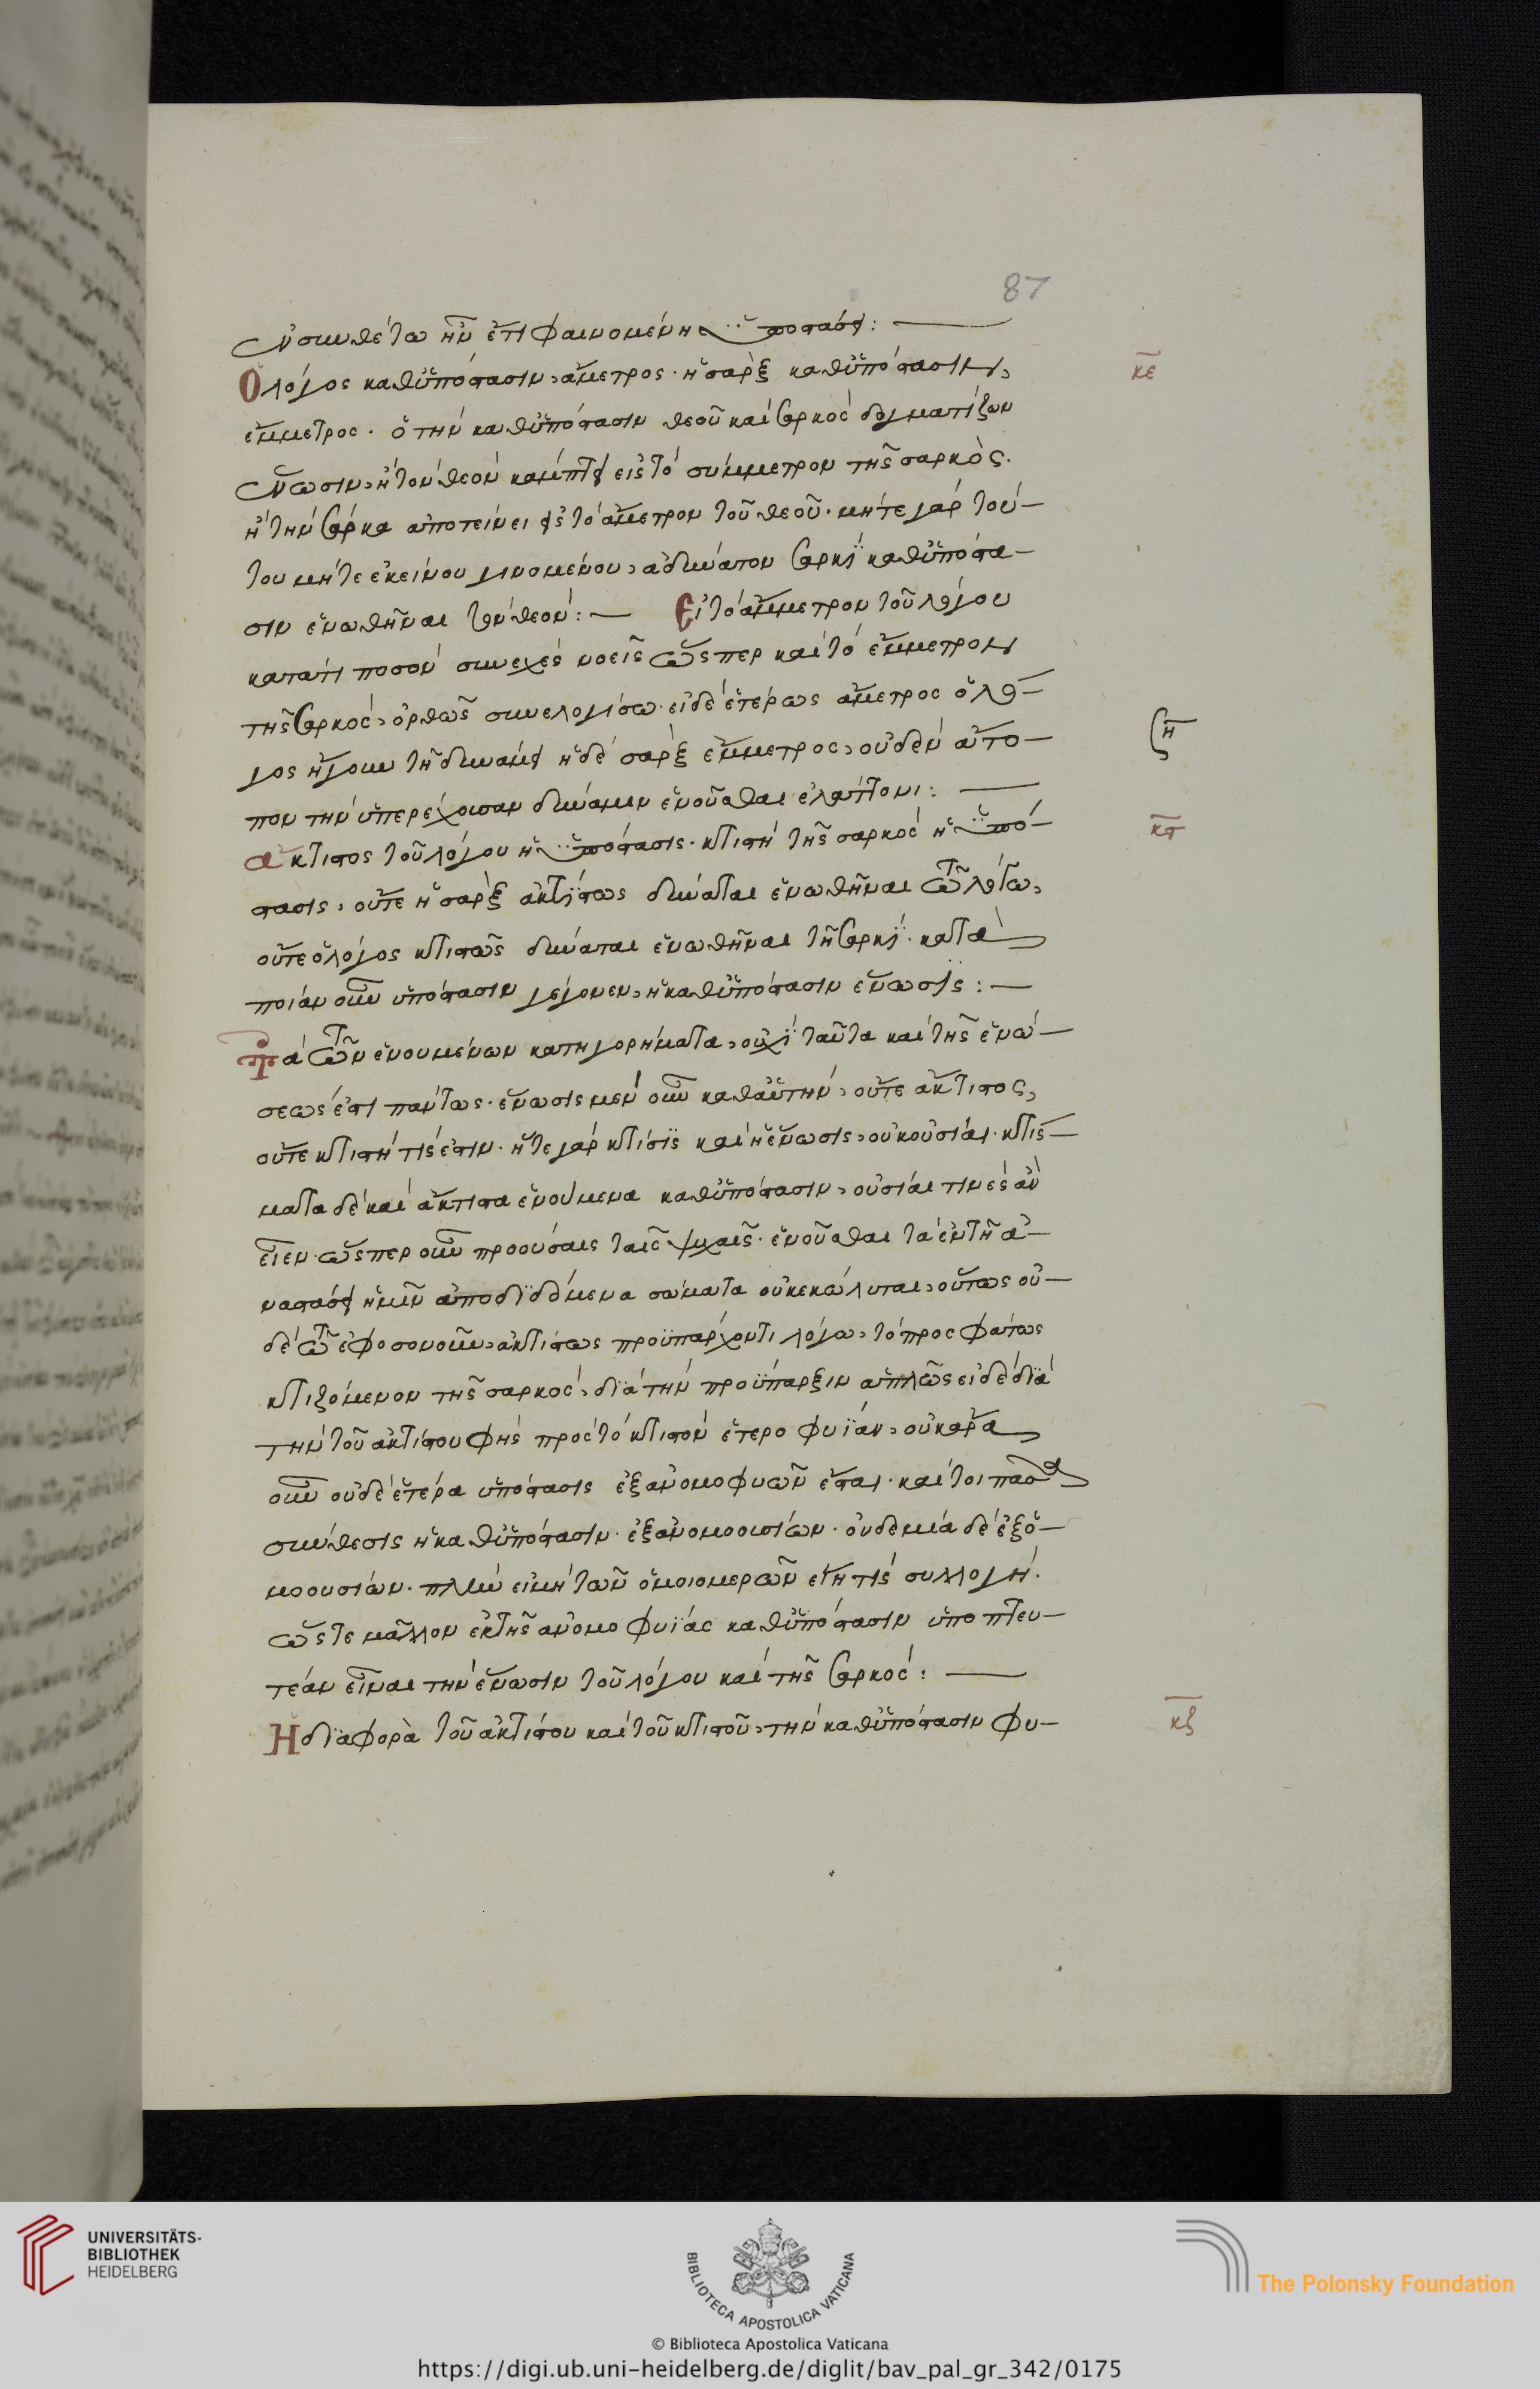 87
ἐν συνθέτω ἦν ἔτι φαινομένη ὑποστάσει:
Ὁ λόγος καθ' ὑπόστασιν, ἄμετρος· ἡ σὰρξ καθ' ὑπόστασιν,
κε
ἔμμετρος· ὁ τὴν καθ' ὑπόστασιν θεοῦ καὶ σαρκὸς δογματίζων
ἕνωσιν, ἢ τὸν θεὸν κάμπτει εἰς τὸ σύμμετρον τῆς σαρκὸς·
ἢ τὴν σάρκα ἀποτείνει εἰς τὸ ἄμετρον τοῦ θεοῦ· μήτε γὰρ τού-
του μήτε ἐκείνου γινομένου, ἀδύνατον σαρκὶ καθ' ὑπόστα-
σιν ἑνωθῆναι τὸν θεόν: Εἰ τὸ ἄμμετρον τοῦ λόγου
κατά τι ποσὸν συνεχὲς νοεῖς ὥσπερ καὶ τὸ ἔμμετρον
τῆς σαρκός, ὀρθῶς συνελογίσω· εἰ δὲ ἑτέρως ἄμετρος ὁ λό-
γος ἤγουν τῆ δυνάμει ἡ δὲ σὰρξ ἔμμετρος, οὐδὲν ἄτο-
πον τὴν ὑπερέχουσαν δύναμιν ἑνοῦσθαι ἐλάττονι:
Ἄκτιστος τοῦ λόγου ἡ ὑπόστασις· κτιστὴ τῆς σαρκὸς ἡ ὑπό-
κϛ
στασις, οὔτε ἡ σὰρξ ἀκτίστως δύναται ἑνωθῆναι τῶ λόγω,
οὔτε ὁ λόγος κτιστῶς δύναται ἑνωθῆναι τῆ σαρκί· κατὰ
ποίαν οὖν ὑπόστασιν γέγονεν, ἡ καθ' ὑπόστασιν ἕνωσις:
τὰ τῶν ἑνουμένων κατηγορήματα, οὐχὶ ταῦτα καὶ τῆς ἑνώ-
σεώς ἐστι πάντως· ἕνωσις μὲν οὖν καθ' αὑτήν, οὔτε ἄκτιστος,
οὔτε κτιστή τίς ἐστιν· ἥτε γὰρ κτίσις καὶ ἡ ἕνωσις, οὐκ οὐσίαι· κτίσ-
ματα δὲ καὶ ἄκτιστα ἑνούμενα καθ' ὑπόστασιν, οὐσίαι τινες ἂν
εἶεν· ὥσπερ οὖν προούσαις ταῖς ψυχαῖς· ἑνοῦσθαι τὰ ἐν τῆ ἀ-
ναστάσει ἡμῖν ἀποδιδόμενα σώματα οὐ κεκώλυται, οὕτως οὐ-
δὲ τῶ ἐφ' ὅσον οὖν, ἀκτίστως προϋπάρχοντι λόγω, τὸ πρὸς φάτως
κτιζόμενον τῆς σαρκός, διὰ τὴν προΰπαρξιν ἁπλῶς εἰ δὲ διὰ
τὴν τοῦ ἀκτίστου φὴς πρὸς τὸ κτιστὸν ἑτεροφυΐαν, οὐκ ἄρα
οὖν οὐδὲ ἑτέρα ὑπόστασις ἐξ ἀνομοφυῶν ἔσται· καίτοι πᾶσα
σύνθεσις ἡ καθ' ὑπόστασιν· ἐξ ἀνομοουσίων· οὐδεμία δὲ ἐξ ὁ-
μοουσίων· πλὴν εἰ μὴ τῶν ὁμοιομερῶν εἴη τις συλλογή·
ὥστε μᾶλλον ἐκ τῆς ἀνομοφυΐας καθ' ὑπόστασιν ὑποπτευ-
τέαν εἶναι τὴν ἕνωσιν τοῦ λόγου καὶ τῆς σαρκός:
Ἡ διαφορὰ τοῦ ἀκτίστου καὶ τοῦ κτιστοῦ, τὴν καθ' ὑπόστασιν φυ-
κζ
UNIVERSITÄTS-
BIBLIOTHEK
HEIDELBERG
BIBLIOTECA APOSTOLICA VATICANA
© Biblioteca Apostolica Vaticana
The Polonsky Foundation
https://digi.ub.uni-heidelberg.de/diglit/bav_pal_gr_342/0175